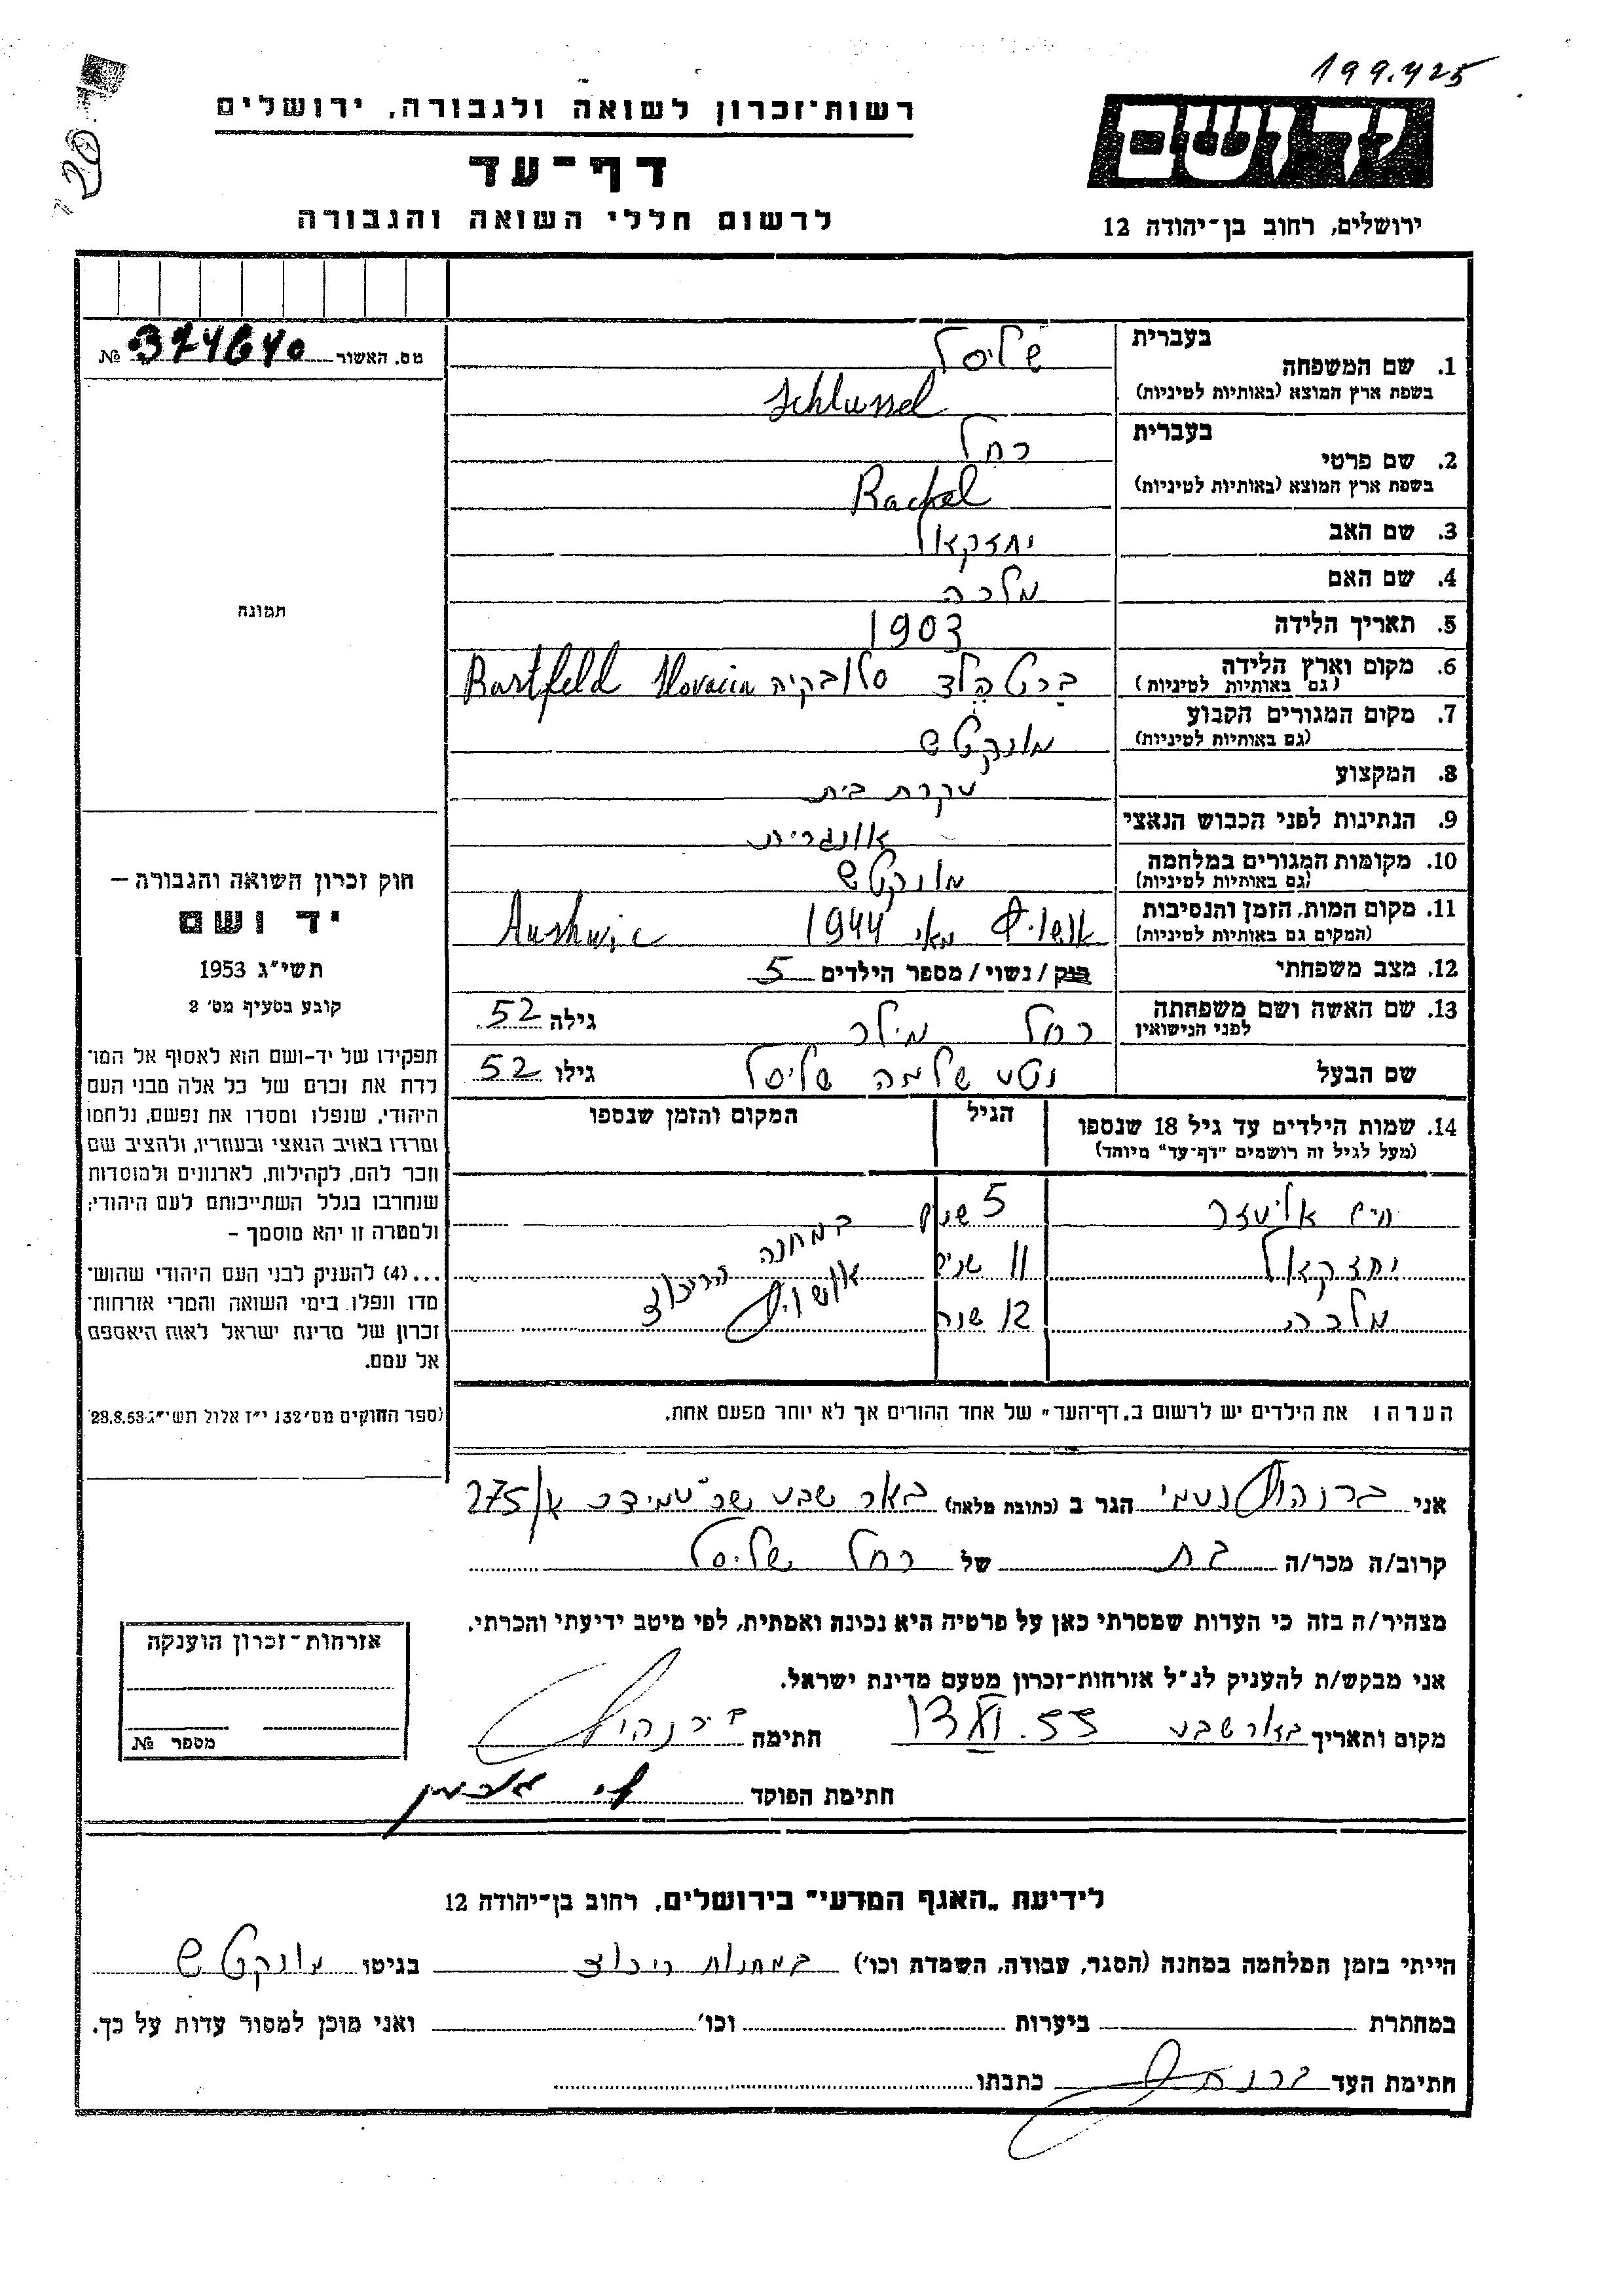 199.425
רשות־זכרון לשואה ולגבורה, ירושלים
ידושם
דף־עד
לרשום חללי השואה והגבורה
ירושלים, רחוב בן־יהודה 12
מס. האשור 374640 №
בעברית שליסל
1. שם המשפחה
בשפת ארץ המוצא (באותיות לטיניות) Schlussel
בעברית רחל
2. שם פרטי
בשפת ארץ המוצא (באותיות לטיניות) Rachel
3. שם האב יחזקאל
4. שם האם מלכה
5. תאריך הלידה 1903
6. מקום וארץ הלידה ברטפלד סלובקיה Bartfeld Slovacia
(גם באותיות לטיניות)
7. מקום המגורים הקבוע מונקטש
(גם באותיות לטיניות)
8. המקצוע עקרת בית
9. הנתינות לפני הכבוש הנאצי אונגרית
10. מקומות המגורים במלחמה מונקטש
(גם באותיות לטיניות)
11. מקום המות, הזמן והנסיבות אושויץ מאי 1944 Aushwic
(המקום גם באותיות לטיניות)
12. מצב משפחתי רוק / נשוי / מספר הילדים 5
13. שם האשה ושם משפחתה רחל מילר גילה 52
לפני הנישואין
שם הבעל נטע שלמה שליסל גילו 52
14. שמות הילדים עד גיל 18 שנספו הגיל המקום והזמן שנספו
(מעל לגיל זה רושמים "דף־עד" מיוחד)
חיים אליעזר 5 שנים במחנה הריכוז
יחזקאל 11 שנים אושויץ
מלכה 12 שנה
הערה: את הילדים יש לרשום ב„דף־העד" של אחד ההורים אך לא יותר מפעם אחת.
תמונה
חוק זכרון השואה והגבורה –
יד ושם
תשי"ג 1953
קובע בסעיף מס' 2
תפקידו של יד-ושם הוא לאסוף אל המו־
לדת את זכרם של כל אלה מבני העם
היהודי, שנפלו ומסרו את נפשם, נלחמו
ומרדו באויב הנאצי ובעוזריו, ולהציב שם
וזכר להם, לקהילות, לארגונים ולמוסדות
שנחרבו בגלל השתייכותם לעם היהודי;
ולמטרה זו יהא מוסמך –
...(4) להעניק לבני העם היהודי שהוש־
מדו ונפלו בימי השואה והמרי אזרחות־
זכרון של מדינת ישראל לאות היאספם
אל עמם.
(ספר החוקים מס' 132 י"ז אלול תשי"ג 28.8.53)
אני נעמי הגר ב (כתובת מלאה) באר שבע שכ' עמידר א/275
קרוב/ה מכר/ה בת של רחל שליסל
מצהיר/ה בזה כי העדות שמסרתי כאן על פרטיה היא נכונה ואמתית, לפי מיטב ידיעתי והכרתי.
אני מבקש/ת להעניק לנ"ל אזרחות־זכרון מטעם מדינת ישראל.
מקום ותאריך באר שבע 13 55. חתימה
חתימת הפוקד
אזרחות־זכרון הוענקה
מספר №
לידיעת „האגף המדעי" בירושלים, רחוב בן־יהודה 12
הייתי בזמן המלחמה במחנה (הסגר, עבודה, השמדת וכו') במחנות ריכוז בגיטו מונקטש
במחתרת ביערות וכו' ואני מוכן למסור עדות על כך.
חתימת העד כתבתו